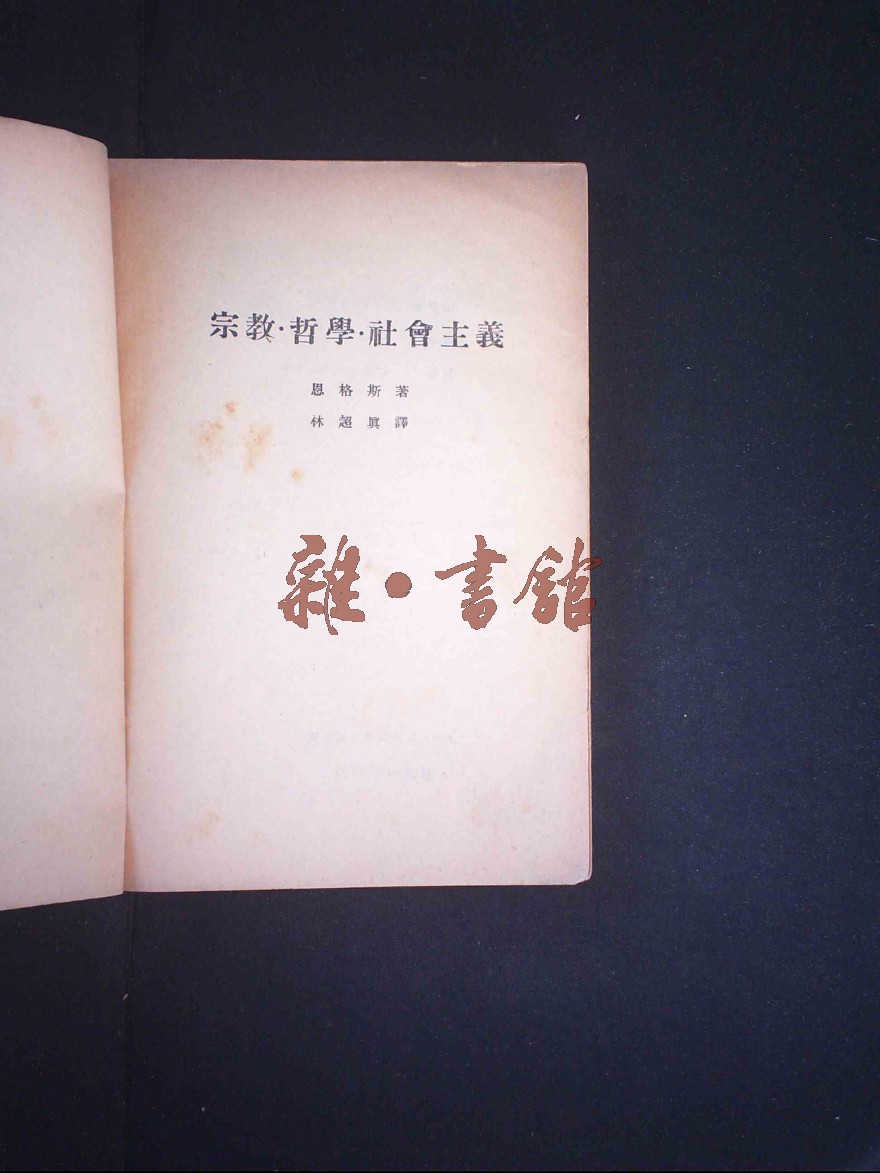 宗教·哲學·社會主義
恩格斯著
林超眞譯
雜·書館